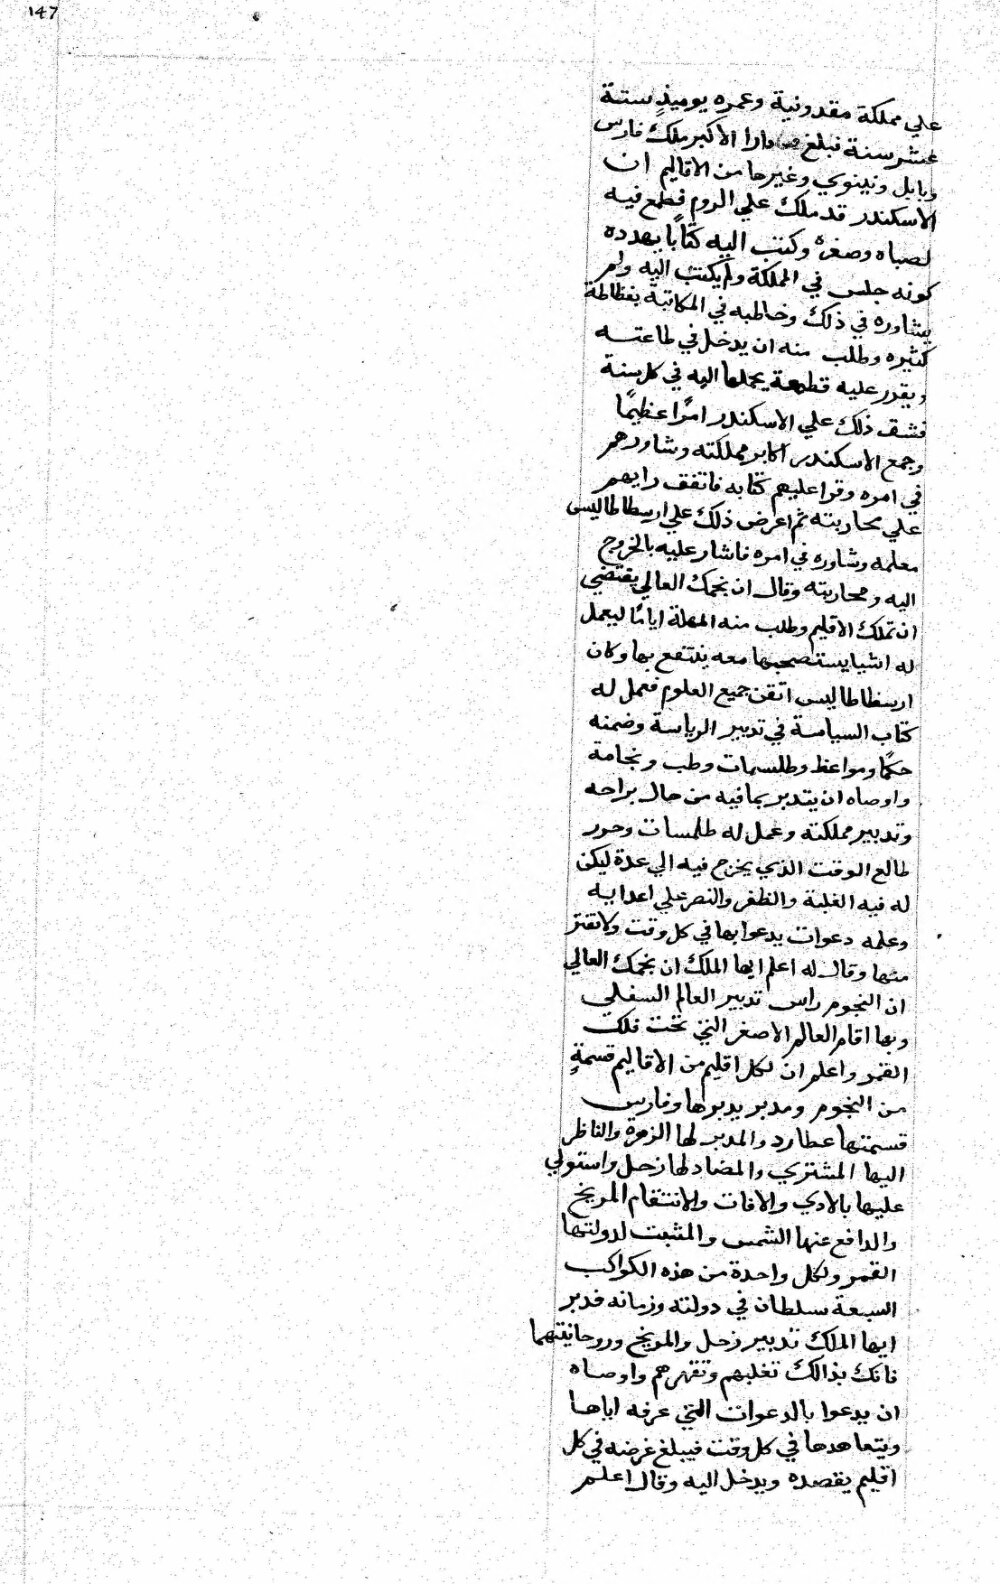 147
علي مملكة مقدونية وعمره يوميذ ستة
عشر سنة فبلغ دارا الاكبر ملك فارس
وبابل ونينوي وغيرها من الاقاليم ان
الاسكندر قد ملك علي الروم فطمع فيه
لصباه وصغره وكتب اليه كتابًا يهدده
كونه جلس في المملكة ولم يكتب اليه ولم
يشاوره في ذلك وخاطبه في المكاتبة بفظاظة
كثيره وطلب منه ان يدخل في طاعته
ويقرر عليه قطيعة يحملها اليه في كل سنة
فشق ذلك علي الاسكندر امرًا عظيمًا
وجمع الاسكندر اكابر مملكته وشاورهم
في امره وقرا عليهم كتابه فاتفق رايهم
علي محاربته ثم اعرض ذلك علي ارسطاطاليس
معلمه وشاوره في امره فاشار عليه بالخروج
اليه ومحاربته وقال ان نجمك العالي يقتضي
ان تملك الاقليم وطلب منه المهلة ايامًا ليعمل
له اشيا يستصحبها معه ينتفع بها وكان
ارسطاطاليس اتقن جميع العلوم فعمل له
كتاب السياسة في تدبير الرياسة وضمنه
حكمًا ومواعظ وطلسمات وطب ونجامة
واوصاه ان يتدبر بما فيه من حال براحه
وتدبير مملكته وعمل له طلمسات وحرر
طالع الوقت الذي يخرج فيه الي عدة ليكن
له فيه الغلبة والظفر والنصر علي اعدايه
وعلمه دعوات يدعوا بها في كل وقت ولا تفتر
منها وقال له اعلم ايها الملك ان نجمك العالي
ان النجوم راس تدبير العالم السفلي
وبها اقام العالم الاصغر التي تحت فلك
القمر واعلم ان لكل اقليم من الاقاليم قسمةٍ
من النجوم ومدبر يدبرها وفارس
قسمتها عطارد والمدبر لها الزهرة والناظر
اليها المشتري والمضاد لها زحل واستولي
عليها بالادي والافات والانتقام المريخ
والدافع عنها الشمس والمثبت لدولتها
القمر ولكل واحدة من هذه الكواكب
السبعة سلطان في دولته وزمانه فدبر
ايها الملك تدبير زحل والمريخ وروحانيتهما
فانك بذالك تغلبهم وتقهرهم واوصاه
ان يدعوا بالدعوات التي عرفه اياها
ويتعاهدها في كل وقت فيبلغ غرضه في كل
اقليم يقصده ويدخل اليه وقال اعلم